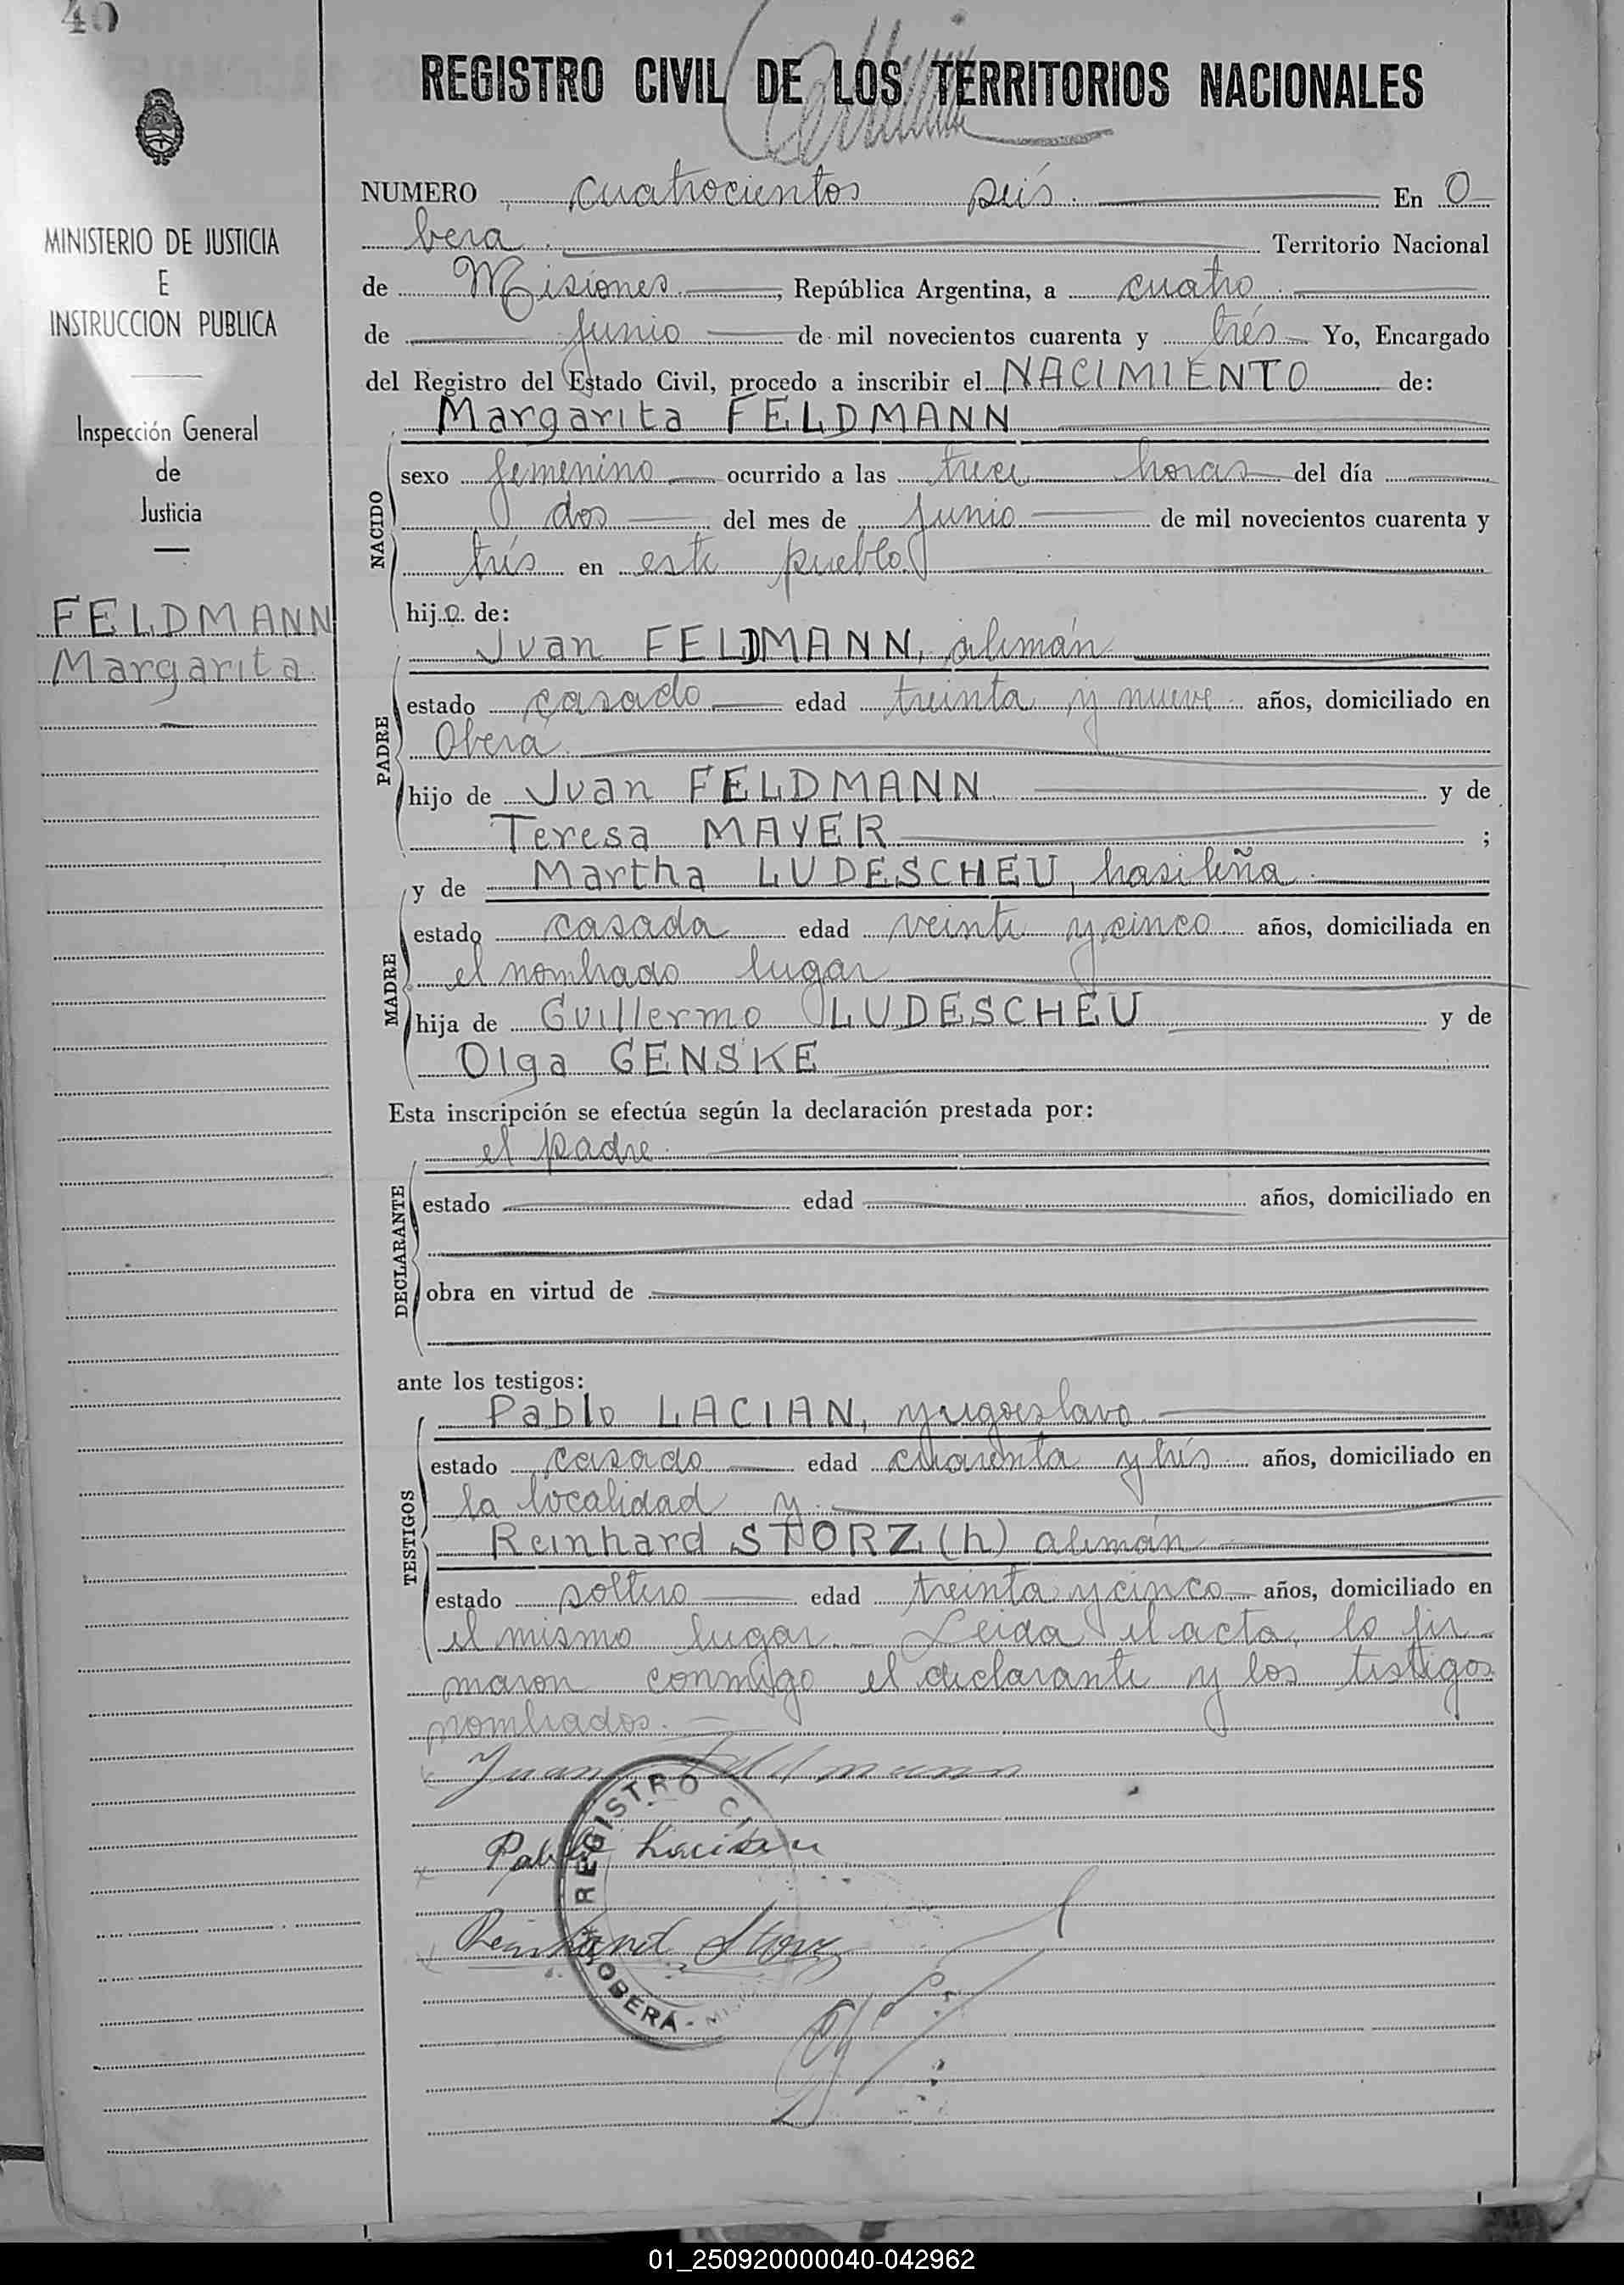 40
REGISTRO CIVIL DE LOS TERRITORIOS NACIONALES
MINISTERIO DE JUSTICIA
E
INSTRUCCION PUBLICA
Inspección General
de
Justicia
FELDMANN
Margarita
NUMERO cuatrocientos seis. En O
bera. Territorio Nacional
de Misiones, República Argentina, a cuatro
de Junio de mil novecientos cuarenta y trés Yo, Encargado
del Registro del Estado Civil, procedo a inscribir el NACIMIENTO de:
Margarita FELDMANN
NACIDO
sexo femenino ocurrido a las trece horas del día
dos del mes de Junio de mil novecientos cuarenta y
trés en este pueblo.
hija de:
Juan FELDMANN, alemán
PADRE
estado casado edad treinta y nueve años, domiciliado en
Oberá.
hijo de Juan FELDMANN y de
Teresa MAYER ;
y de Martha LUDESCHEU, brasileña
MADRE
estado casada edad veinte y cinco años, domiciliada en
el nombrado lugar
hija de Guillermo LUDESCHEU y de
Olga GENSKE
Esta inscripción se efectúa según la declaración prestada por:
el padre.
DECLARANTE
estado edad años, domiciliado en
obra en virtud de
ante los testigos:
Pablo LACIAN, yugoeslavo
TESTIGOS
estado casado edad cuarenta y trés años, domiciliado en
la localidad y
Reinhard STORZ (h) alemán
estado soltero edad treinta y cinco años, domiciliado en
el mismo lugar. Leida el acta, lo fir
maron conmigo el declarante y los testigos
nombrados.
Juan Feldmann
Pablo Lacian
Reinhard Storz
REGISTRO CI
OBERÁ - MIS
01_250920000040-042962